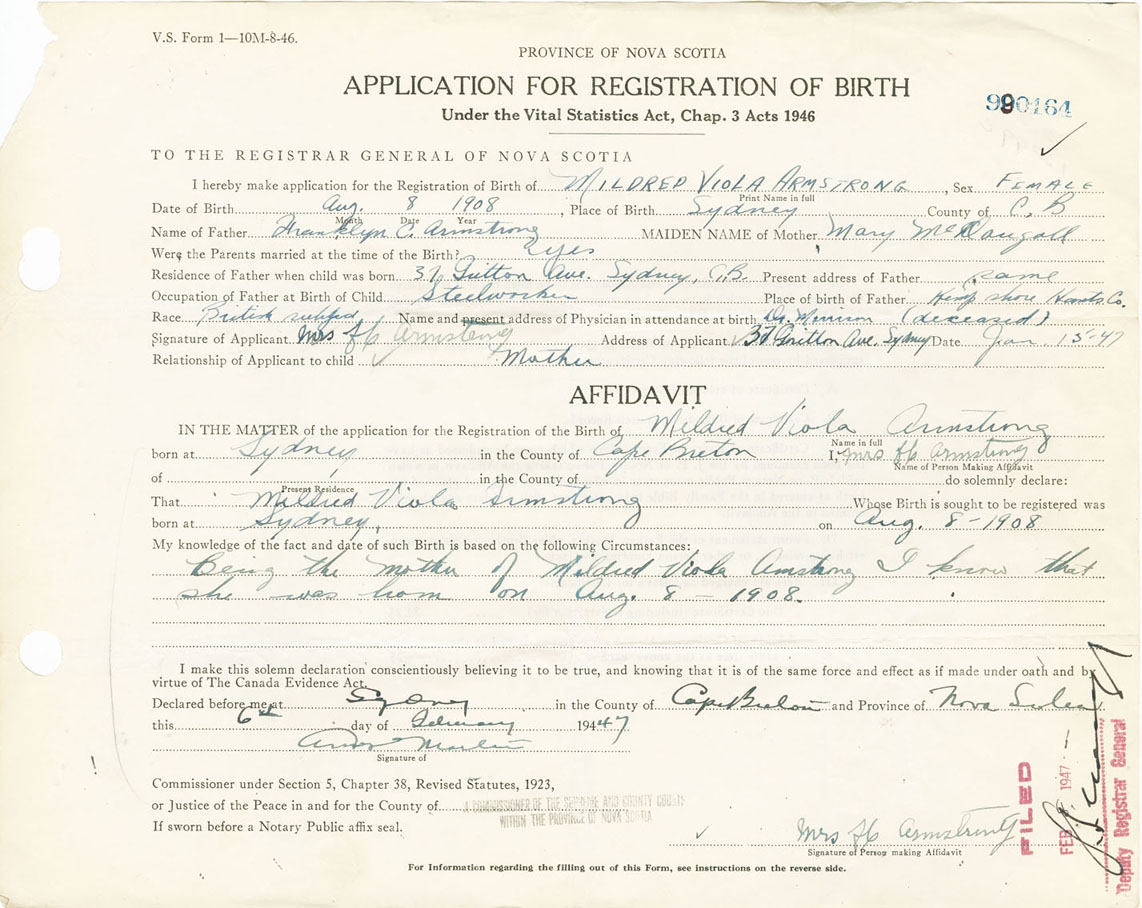 V.S. Form 1—10M-8-46.
PROVINCE OF NOVA SCOTIA
APPLICATION FOR REGISTRATION OF BIRTH
990164
Under the Vital Statistics Act, Chap. 3 Acts 1946
TO THE REGISTRAR GENERAL OF NOVA SCOTIA
I hereby make application for the Registration of Birth of MILDRED VIOLA ARMSTRONG, Sex FEMALE
Print Name in full
Date of Birth Aug. 8 1908, Place of Birth Sydney County of C. B
Month Date Year
Name of Father Franklyn C. Armstrong MAIDEN NAME of Mother Mary McDougall
Were the Parents married at the time of the Birth? yes
Residence of Father when child was born 37 Ave. Sydney, C.B. Present address of Father same
Occupation of Father at Birth of Child Steelworker Place of birth of Father Kemp shore Hants Co.
Race British subject Name and present address of Physician in attendance at birth Dr. Morrison (deceased)
Signature of Applicant Mrs F C Armstrong Address of Applicant 37 Ave. Sydney Date Jan. 15-47
Relationship of Applicant to child Mother
AFFIDAVIT
IN THE MATTER of the application for the Registration of the Birth of Mildred Viola Armstrong
Name in full
born at Sydney in the County of Cape Breton I, Mrs F C Armstrong
Name of Person Making Affidavit
of in the County of do solemnly declare:
Present Residence
That Mildred Viola Armstrong Whose Birth is sought to be registered was
born at Sydney, on Aug. 8-1908
My knowledge of the fact and date of such Birth is based on the following Circumstances:
Being the mother of Mildred Viola Amstrong I know that
she was born on Aug. 8 - 1908.
I make this solemn declaration conscientiously believing it to be true, and knowing that it is of the same force and effect as if made under oath and by
virtue of The Canada Evidence Act.
Declared before me at Sydney in the County of Cape Breton and Province of Nova Scotia
this 6th day of February 1947
Signature of
Commissioner under Section 5, Chapter 38, Revised Statutes, 1923,
or Justice of the Peace in and for the County of
A COMMISSIONER OF THE SUPREME AND COUNTY COURTS
WITHIN THE PROVINCE OF NOVA SCOTIA
If sworn before a Notary Public affix seal.
Mrs F C Armstrong
Signature of Person making Affidavit
For Information regarding the filling out of this Form, see instructions on the reverse side.
FILED
FEB 1947
Deputy Registrar General